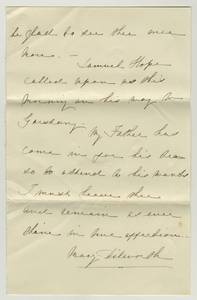 be glad to see thee once
more. —
Samuel Hope
called upon us this
morning on his way to
My Father has
come in for his tea
so to attend to his wants
I must leave thee
and remain as ever
thine in true affection
Mary